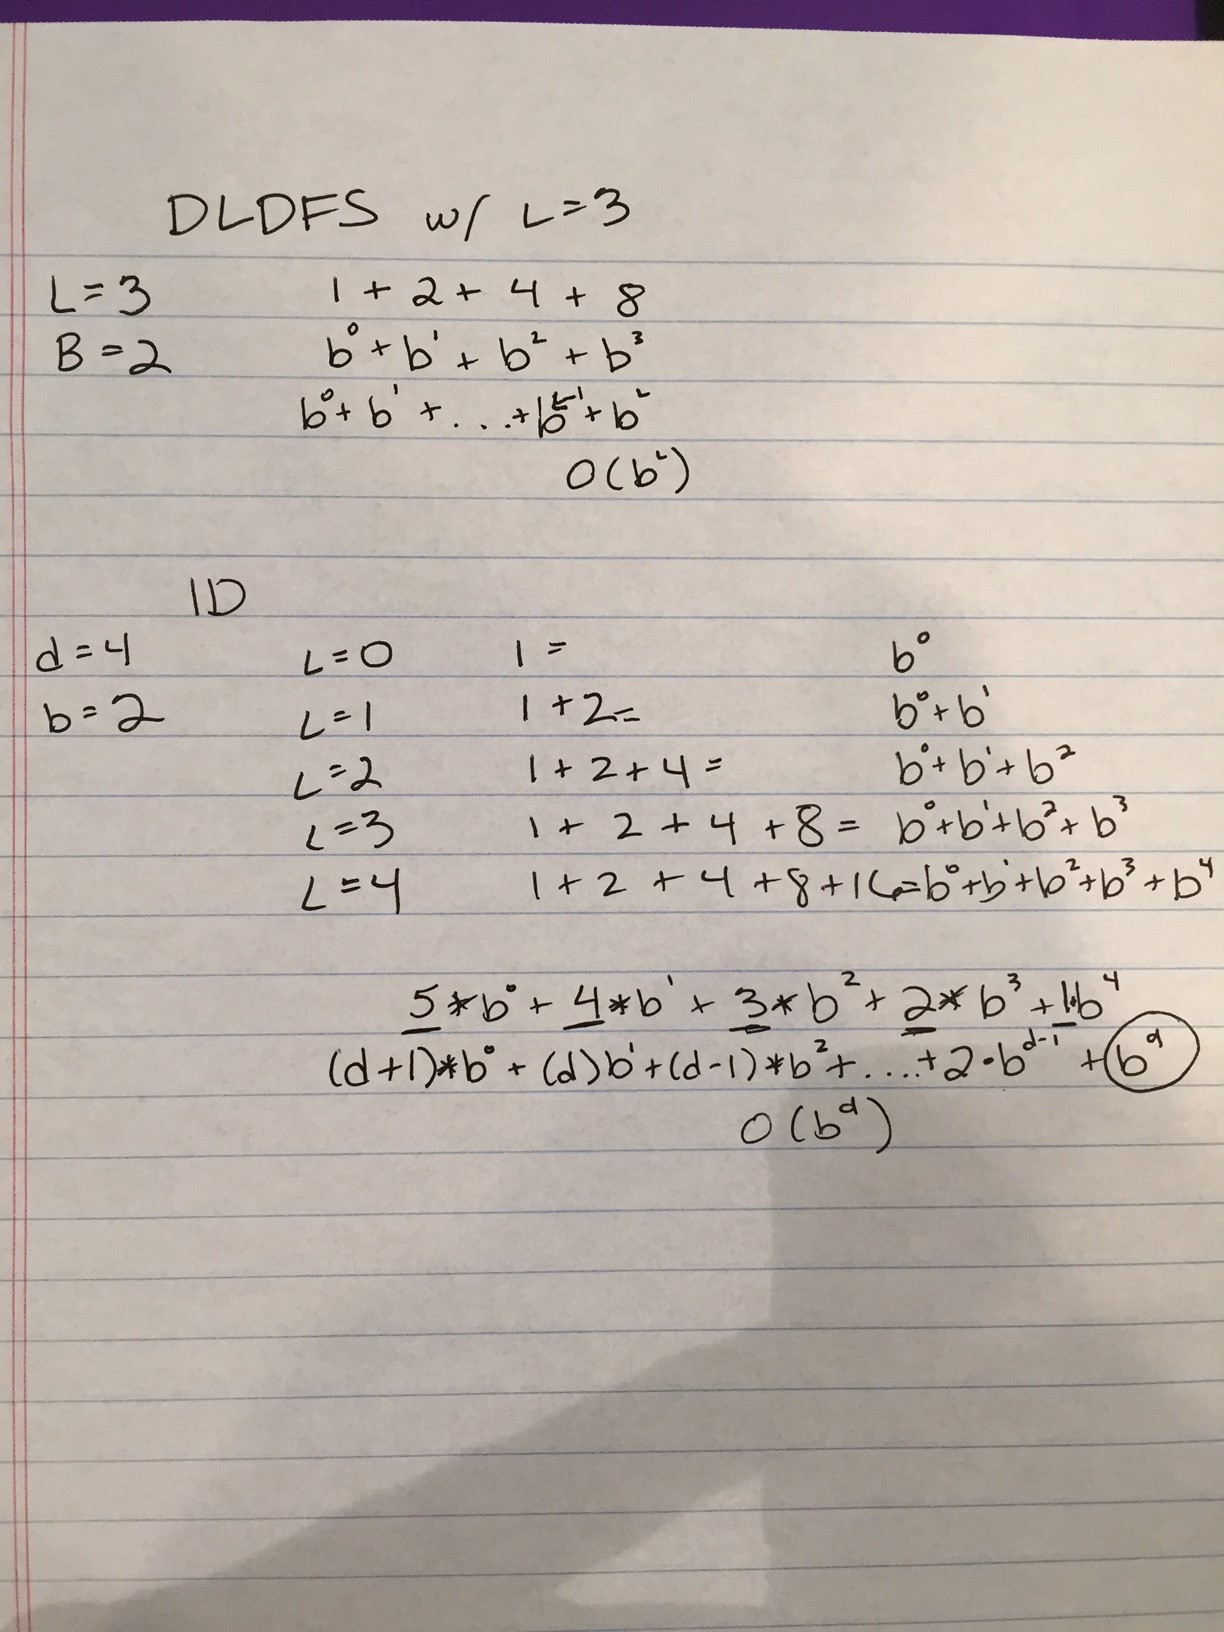 DLDFS w/ L=3
L=3 1 + 2 + 4 + 8
B=2 b⁰ + b¹ + b² + b³
b⁰ + b¹ + . . . + b^(L-1) + b^L
O(b^L)
ID
d=4 L=0 1 = b⁰
b=2 L=1 1 + 2 = b⁰ + b¹
L=2 1 + 2 + 4 = b⁰ + b¹ + b²
L=3 1 + 2 + 4 + 8 = b⁰ + b¹ + b² + b³
L=4 1 + 2 + 4 + 8 + 16 = b⁰ + b¹ + b² + b³ + b⁴
5*b⁰ + 4*b¹ + 3*b² + 2*b³ + 1·b⁴
(d+1)*b⁰ + (d)b¹ + (d-1)*b² + . . . . + 2·b^(d-1) + b^d
O(b^d)